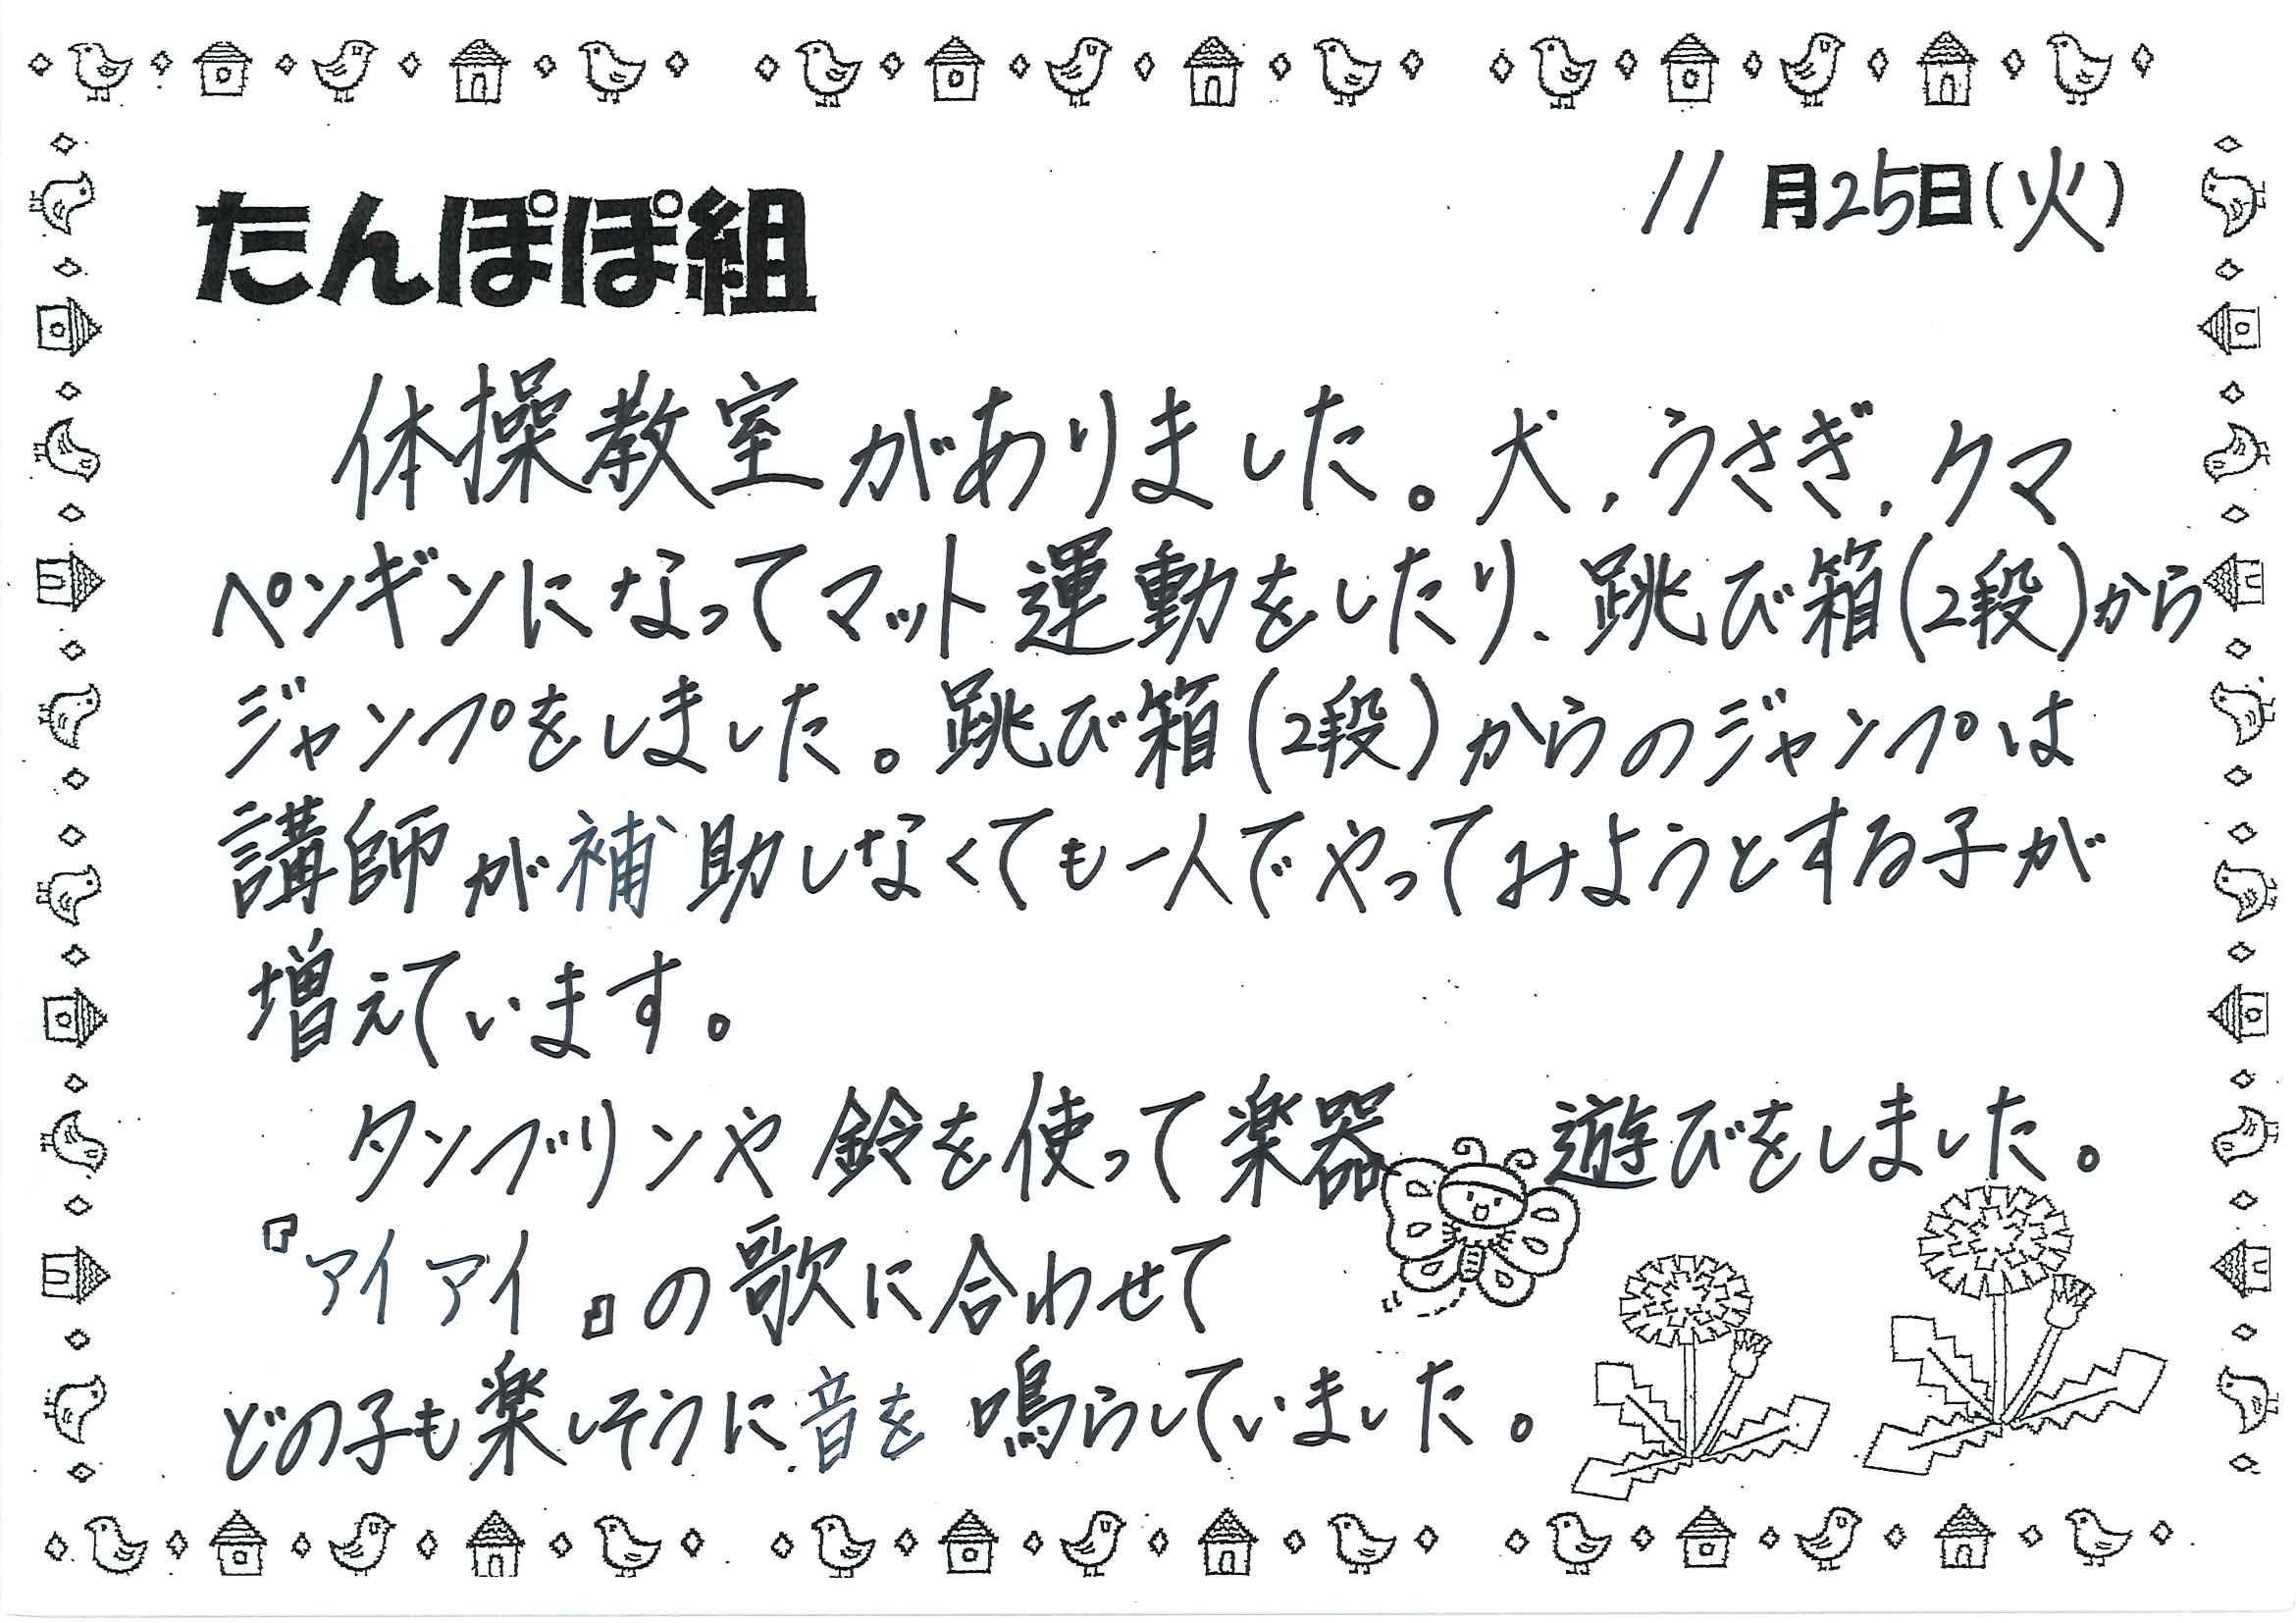 11月25日(火)
たんぽぽ組
体操教室がありました。犬、うさぎ、クマ
ペンギンになってマット運動をしたり、跳び箱(2段)から
ジャンプをしました。跳び箱(2段)からのジャンプは
講師が補助しなくても一人でやってみようとする子が
増えています。
タンブリンや鈴を使って楽器遊びをしました。
『アイアイ』の歌に合わせて
どの子も楽しそうに音を鳴らしていました。